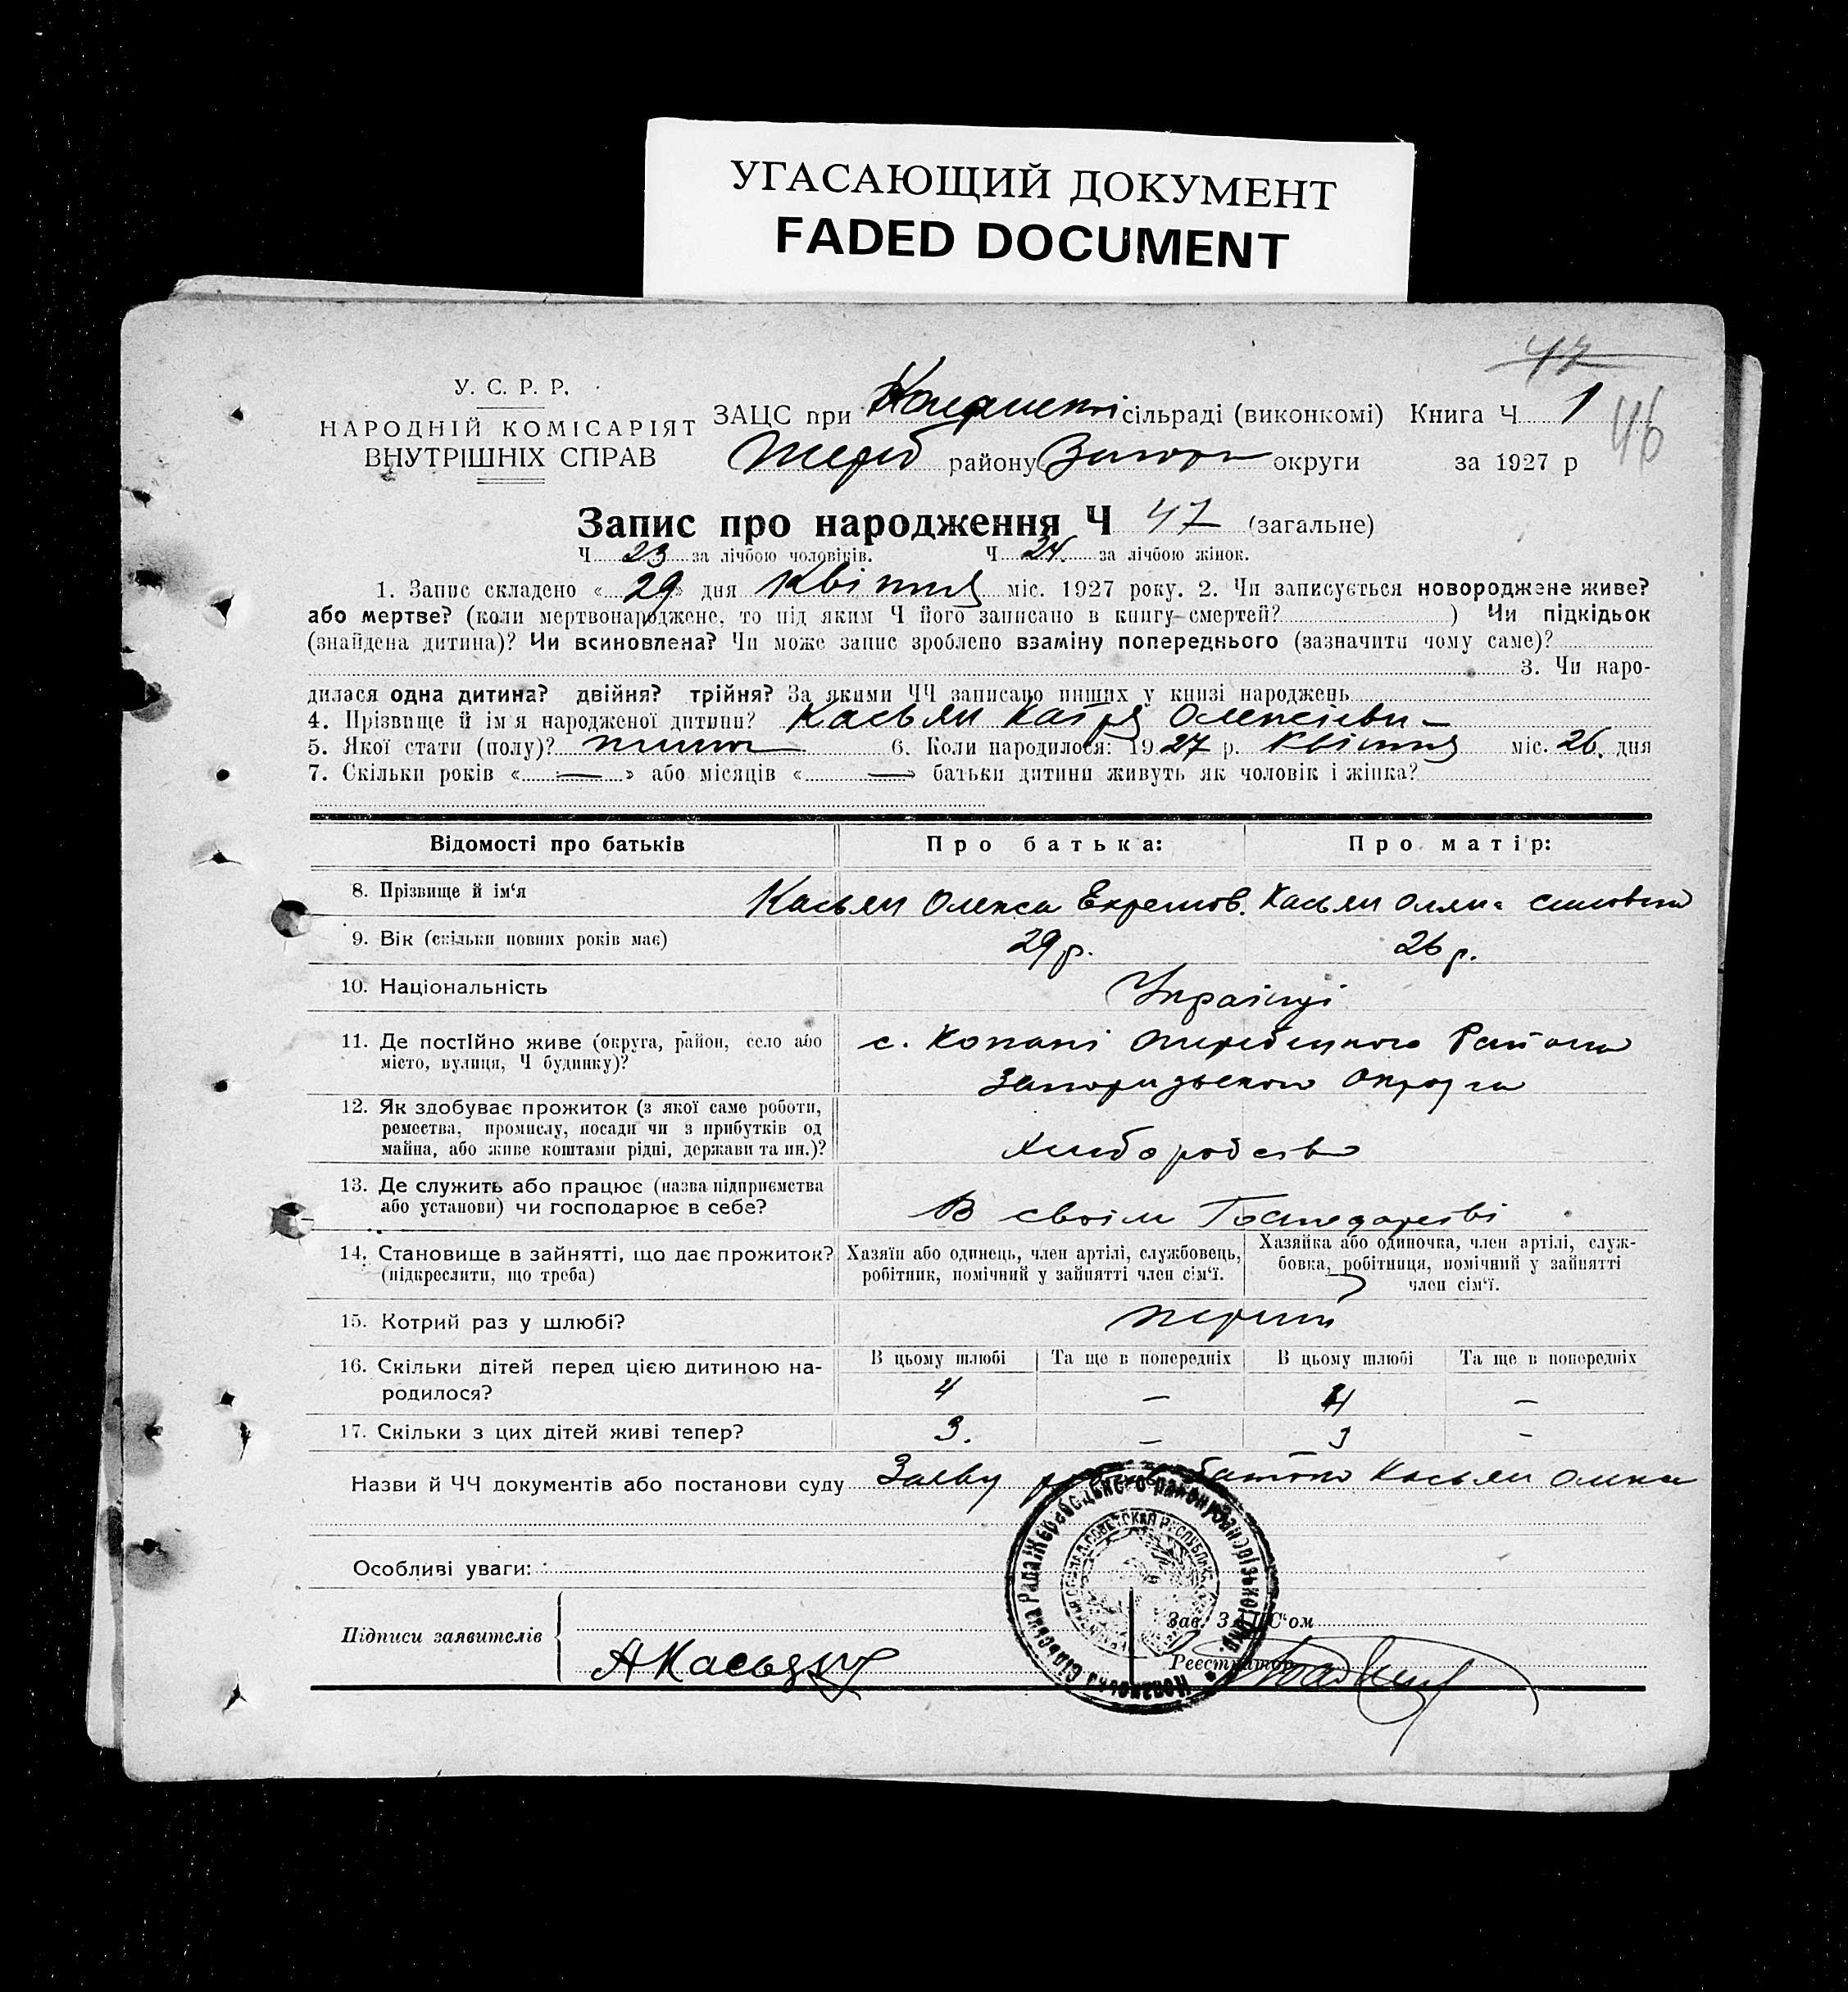 УГАСАЮЩИЙ ДОКУМЕНТ
FADED DOCUMENT
47
У. С. Р. Р.
НАРОДНІЙ КОМІСАРІЯТ
ВНУТРІШНІХ СПРАВ
ЗАЦС при сільраді (виконкомі) Книга Ч 1
46
Жереб району Запор округи за 1927 р
Запис про народження Ч 47 (загальне)
Ч 23 за лічбою чоловіків. Ч 24. за лічбою жінок.
1. Запис складено « 29 » дня квітня міс. 1927 року. 2. Чи записується новороджене живе?
або мертве? (коли мертвонароджене, то під яким Ч його записано в книгу смертей? ) Чи підкідьок
(знайдена дитина)? Чи всиновлена? Чи може запис зроблено взаміну попереднього (зазначити чому саме)?
3. Чи наро-
дилася одна дитина? двійня? трійня? За якими ЧЧ записано инших у книзі народжень
4. Прізвище й ім'я народженої дитини? Касьян Катря Олексіївн
5. Якої стати (полу)? жіноч 6. Коли народилося: 1927 р. квітня міс. 26. дня
7. Скільки років « — » або місяців « — » батьки дитини живуть як чоловік і жінка?
Відомості про батьків Про батька: Про матір:
8. Прізвище й ім'я Касьян Олекса Ехремов. Касьян
9. Вік (скільки повних років має) 29 р. 26 р.
10. Національність Українці
11. Де постійно живе (округа, район, село або с. Копані Жеребецького Району
місто, вулиця, Ч будинку)? Запоризького Округа
12. Як здобуває прожиток (з якої саме роботи,
ремества, промислу, посади чи з прибутків од
майна, або живе коштами рідні, держави та ин.)? Хліборобство
13. Де служить або працює (назва підприємства
або установи) чи господарює в себе? В своїм Господарстві
14. Становище в зайнятті, що дає прожиток? Хазяїн або одинець, член артілі, службовець, Хазяйка або одиночка, член артілі, служ-
(підкреслити, що треба) робітник, помічний у зайнятті член сім'ї. бовка, робітниця, помічний у зайнятті
член сім'ї.
15. Котрий раз у шлюбі? перший
16. Скільки дітей перед цією дитиною на- В цьому шлюбі Та ще в попередніх В цьому шлюбі Та ще в попередніх
родилося? 4 — 4 —
17. Скільки з цих дітей живі тепер? 3. — 3 -
Назви й ЧЧ документів або постанови суду Заяву робив батько Касьян
Особливі уваги:
Підписи заявителів
Зав. ЗАЦС'ом
А Касьян
Реєстратор
Копанська Сільська Рада Жеребецького району Запорізької Окр.